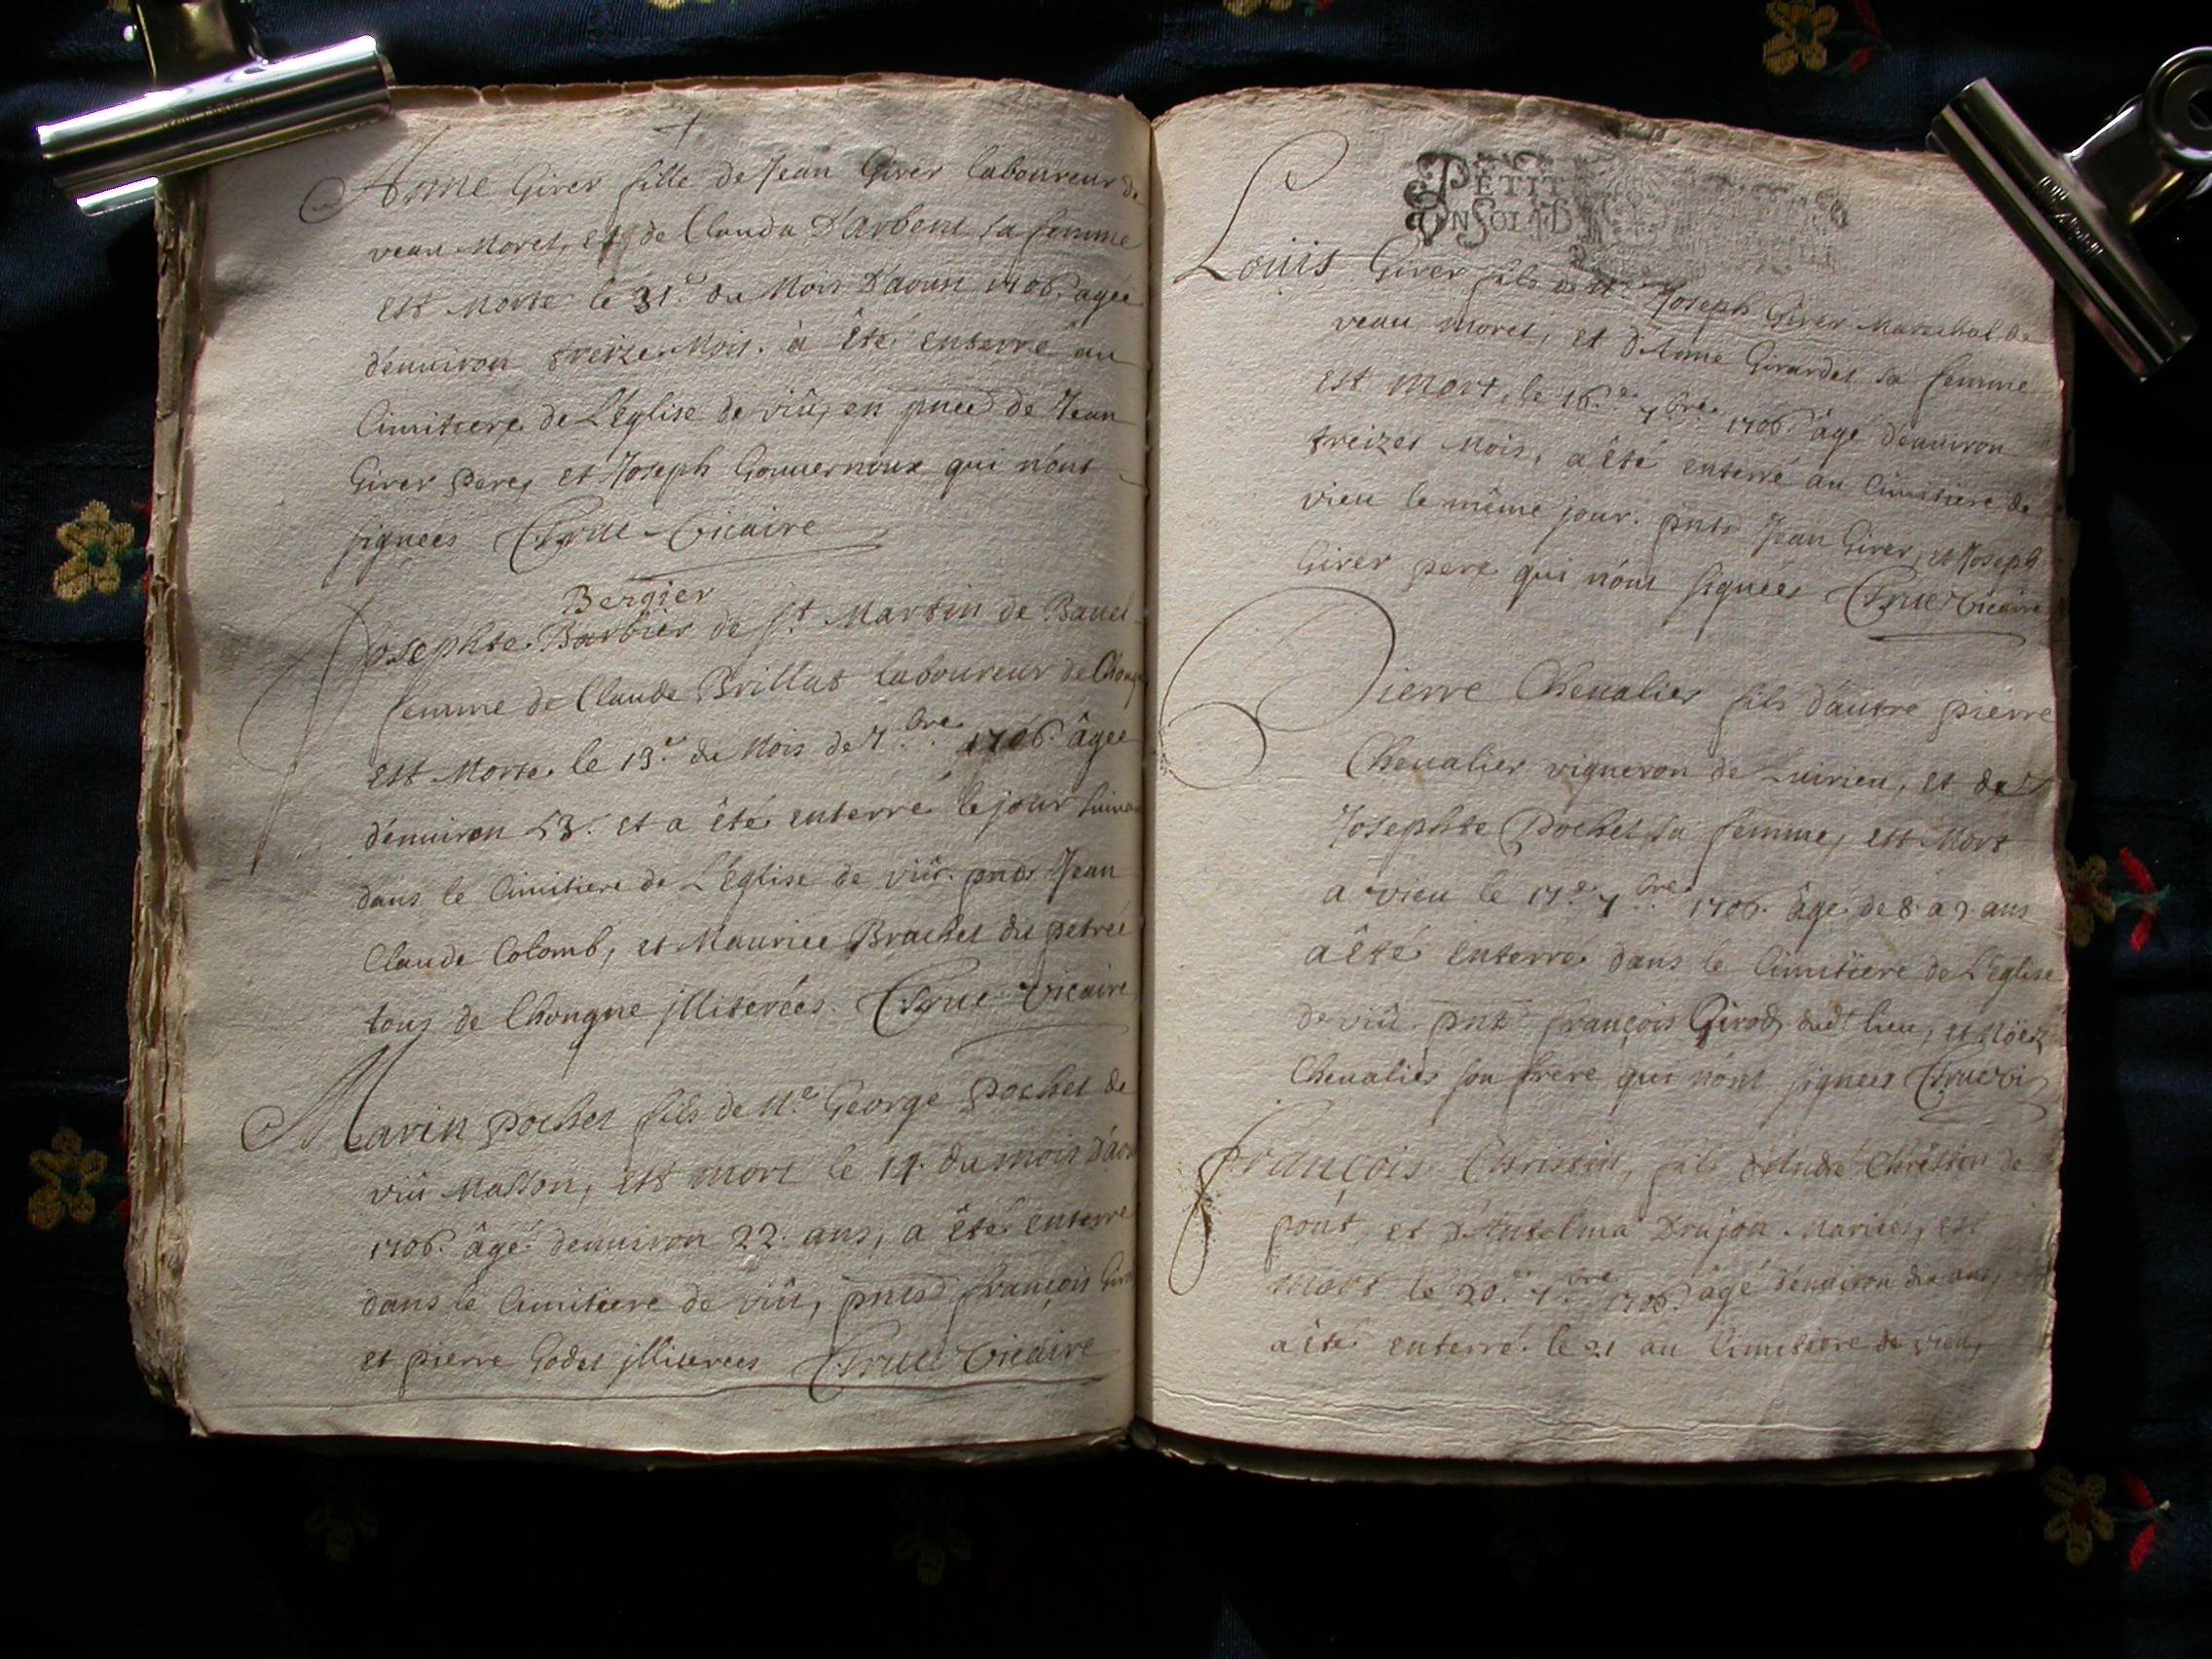 Anne Girer fille de Jean Girer laboureur de
veau Morel, et de Clauda D'arbent sa femme
est Morte le 31.e du Mois D'aoust 1706. agée
d'enuiron treize Mois. à été enterré au
Cimitiere de L'église de viû, en pnce de Jean
Girer pere, et Joseph Gouuernoux qui n'ont
signées Vicaire
Bergier
Josephte Barbier de st Martin de Bauel
femme de Claude Brillat laboureur de Chong
est Morte le 13.e du Mois de 7.bre 1706. âgée
d'enuiron 53. et a été enterré le jour suiua
dans le Cimitiere de L'église de viû. pnts Jean
Claude Colomb, et Maurice Brachet du petree
tous de Chongne jlliterées Vicaire
Marin pochet fils de M.e George pochet de
viû Masson, est mort le 19. du mois d'aou
1706. âgé denuiron 22. ans, a été enterre
dans le Cimitiere de viû, pnts françois Giro
et pierre Godet jlliterées Vicaire
PETIT
UN SOL 4 D
Louis Girer fils de M.e Joseph Girer Mareschal de
veau morel, et d'Anne Girardet sa femme
est mort, le 16.e 7.bre 1706. âgé d'enuiron
treizes Mois, a été enterré au Cimitiere de
vieu le même jour. pnts Jean Girer, et Joseph
Girer pere qui n'ont signées Vicaire
Pierre Cheualier fils d'autre pierre
Cheualier vigneron de Luirieu, et de
Josephte Pochet sa femme, est Mort
a vieu le 17.e 7.bre 1706. âgé de 8 a 9 ans
a été enterré dans le Cimitiere de L'église
de viû. pnts françois Girod, dudt lieu, et
Cheualier son frere qui n'ont signees
françois Christin, fils d'André Christin de
pont, et d'Anselma Drujon Mariées, est
mort le 20.e 7.bre 1706. âgé d'enuiron dix ans,
a été enterré le 21 au Cimitiere de vieu,